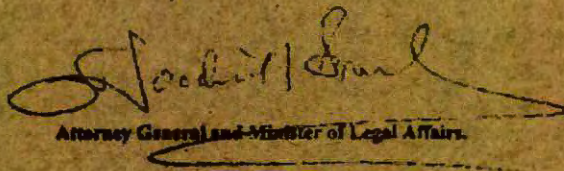 Attorney General and Minister of Legal Affairs.